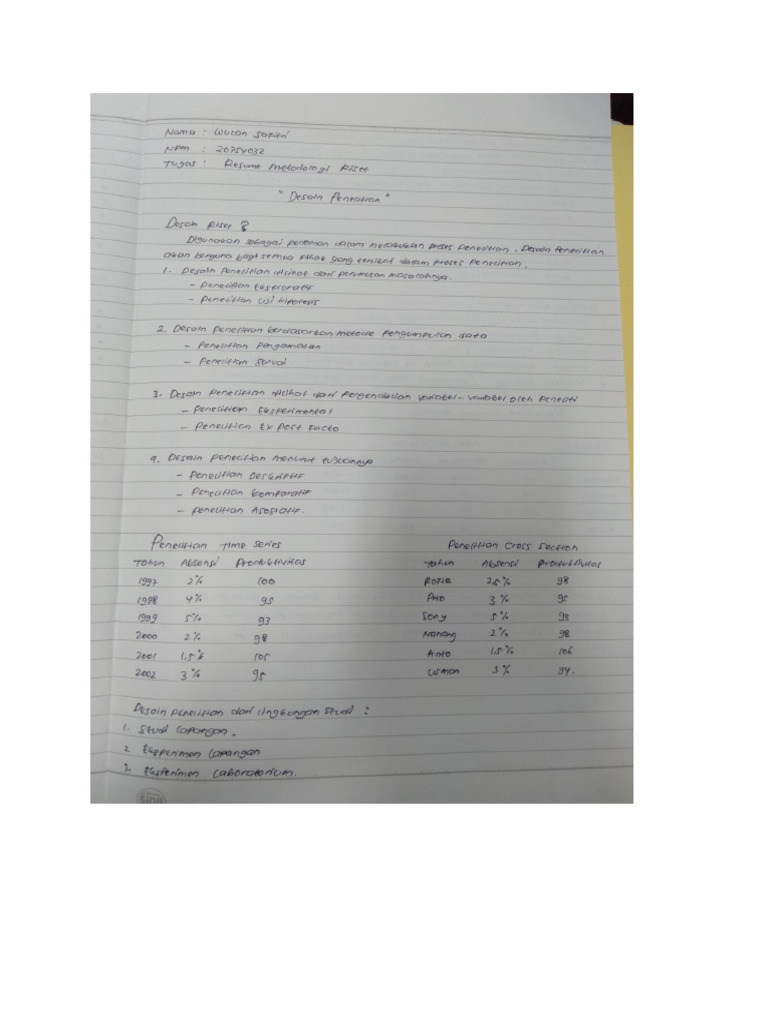 Nama : Wulan Safitri
NPM : 20754032
Tugas : Resume Metodologi Riset
"Desain Penelitian"
Desain Riset ?
Digunakan sebagai pedoman dalam melakukan proses penelitian. Desain Penelitian
akan berguna bagi semua pihak yang terlibat dalam proses penelitian.
1. Desain Penelitian dilihat dari perumusan masalahnya.
- Penelitian Eksploratif
- Penelitian Uji Hipotesis
2. Desain Penelitian berdasarkan metode Pengumpulan data
- Penelitian Pengamatan
- Penelitian Survai
3. Desain Penelitian dilihat dari Pengendalian variabel-variabel oleh Peneliti
- Penelitian Eksperimental
- Penelitian Ex Post Facto
4. Desain Penelitian menurut tujuannya
- Penelitian Deskriptif
- Penelitian Komparatif
- Penelitian Asosiatif.
Penelitian Time Series Penelitian Cross Section
Tahun Absensi Produktivitas Tahun Absensi Produktivitas
1997 2% 100 2,5% 98
1998 4% 95 3% 95
1999 5% 93 Sony 5% 93
2000 2% 98 Nanang 2% 98
2001 1,5% 105 Anto 1,5% 106
2002 3% 95 Usman 3% 94.
Desain Penelitian dari lingkungan Studi :
1. Studi Lapangan.
2. Eksperimen Lapangan
3. Eksperimen Laboratorium.